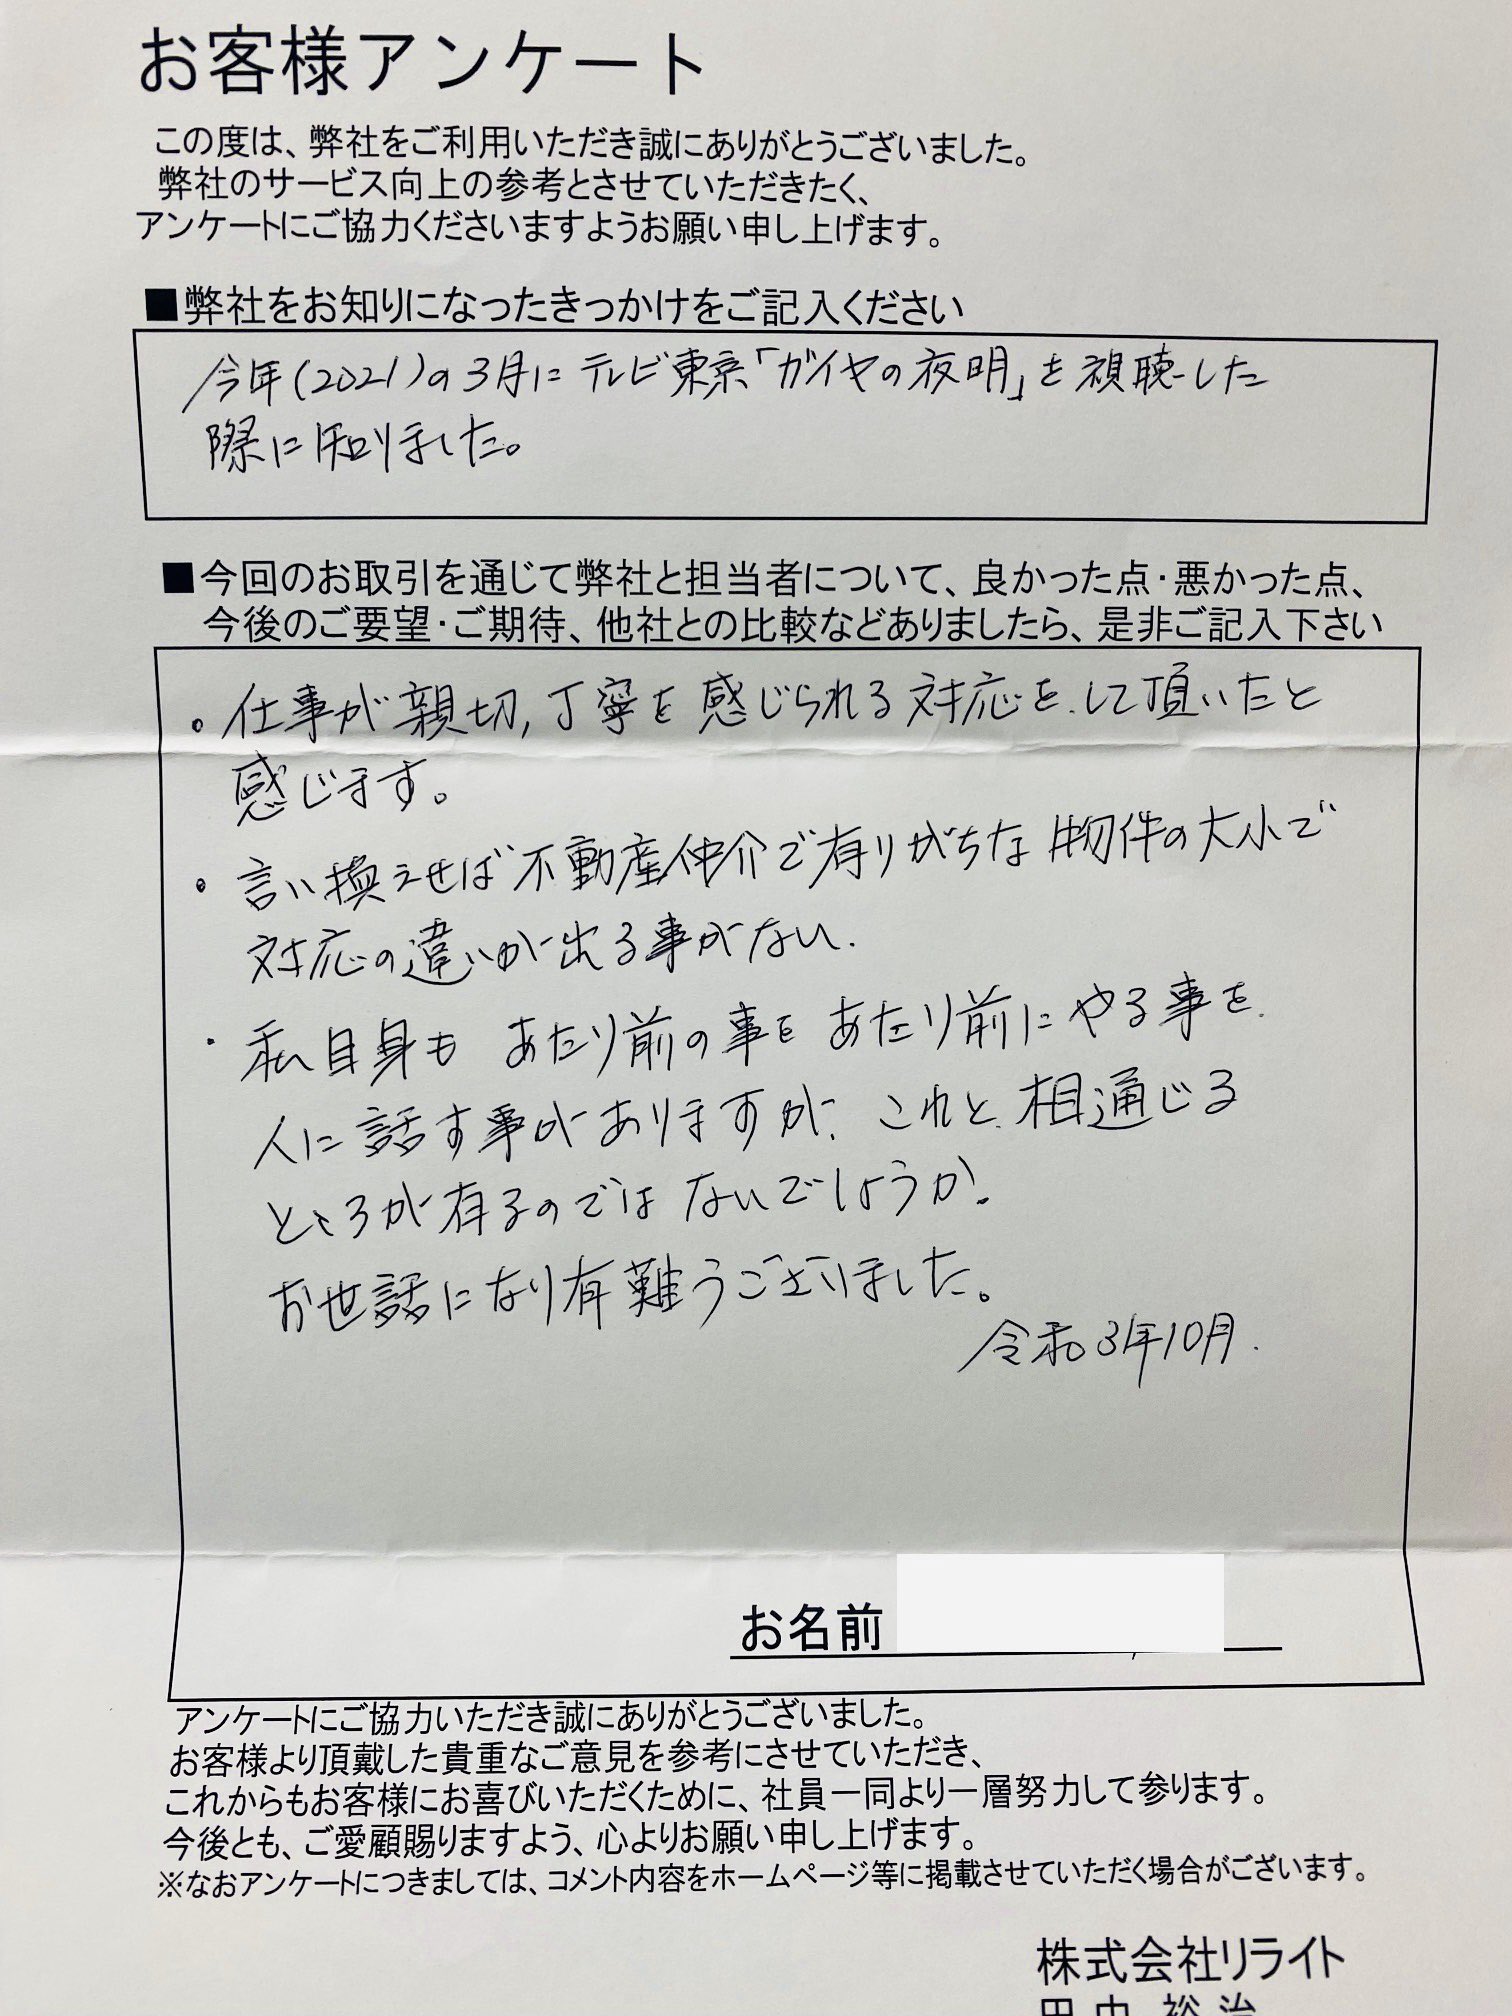 お客様アンケート
この度は、弊社をご利用いただき誠にありがとうございました。
弊社のサービス向上の参考とさせていただきたく、
アンケートにご協力くださいますようお願い申し上げます。
■弊社をお知りになったきっかけをご記入ください
今年(2021)の3月にテレビ東京「ガイヤの夜明」を視聴した
際に知りました。
■今回のお取引を通じて弊社と担当者について、良かった点・悪かった点、
今後のご要望・ご期待、他社との比較などありましたら、是非ご記入下さい
。仕事が親切,丁寧を感じられる対応をして頂いたと
感じます。
・言い換えせば不動産仲介で有りがちな物件の大小で
対応の違いが出る事がない.
・私自身もあたり前の事をあたり前にやる事を
人に話す事がありますが、これと相通じる
ところが有るのではないでしょうか。
お世話になり有難うございました。
令和3年10月.
お名前
アンケートにご協力いただき誠にありがとうございました。
お客様より頂戴した貴重なご意見を参考にさせていただき、
これからもお客様にお喜びいただくために、社員一同より一層努力して参ります。
今後とも、ご愛顧賜りますよう、心よりお願い申し上げます。
※なおアンケートにつきましては、コメント内容をホームページ等に掲載させていただく場合がございます。
株式会社リライト
田中 裕治